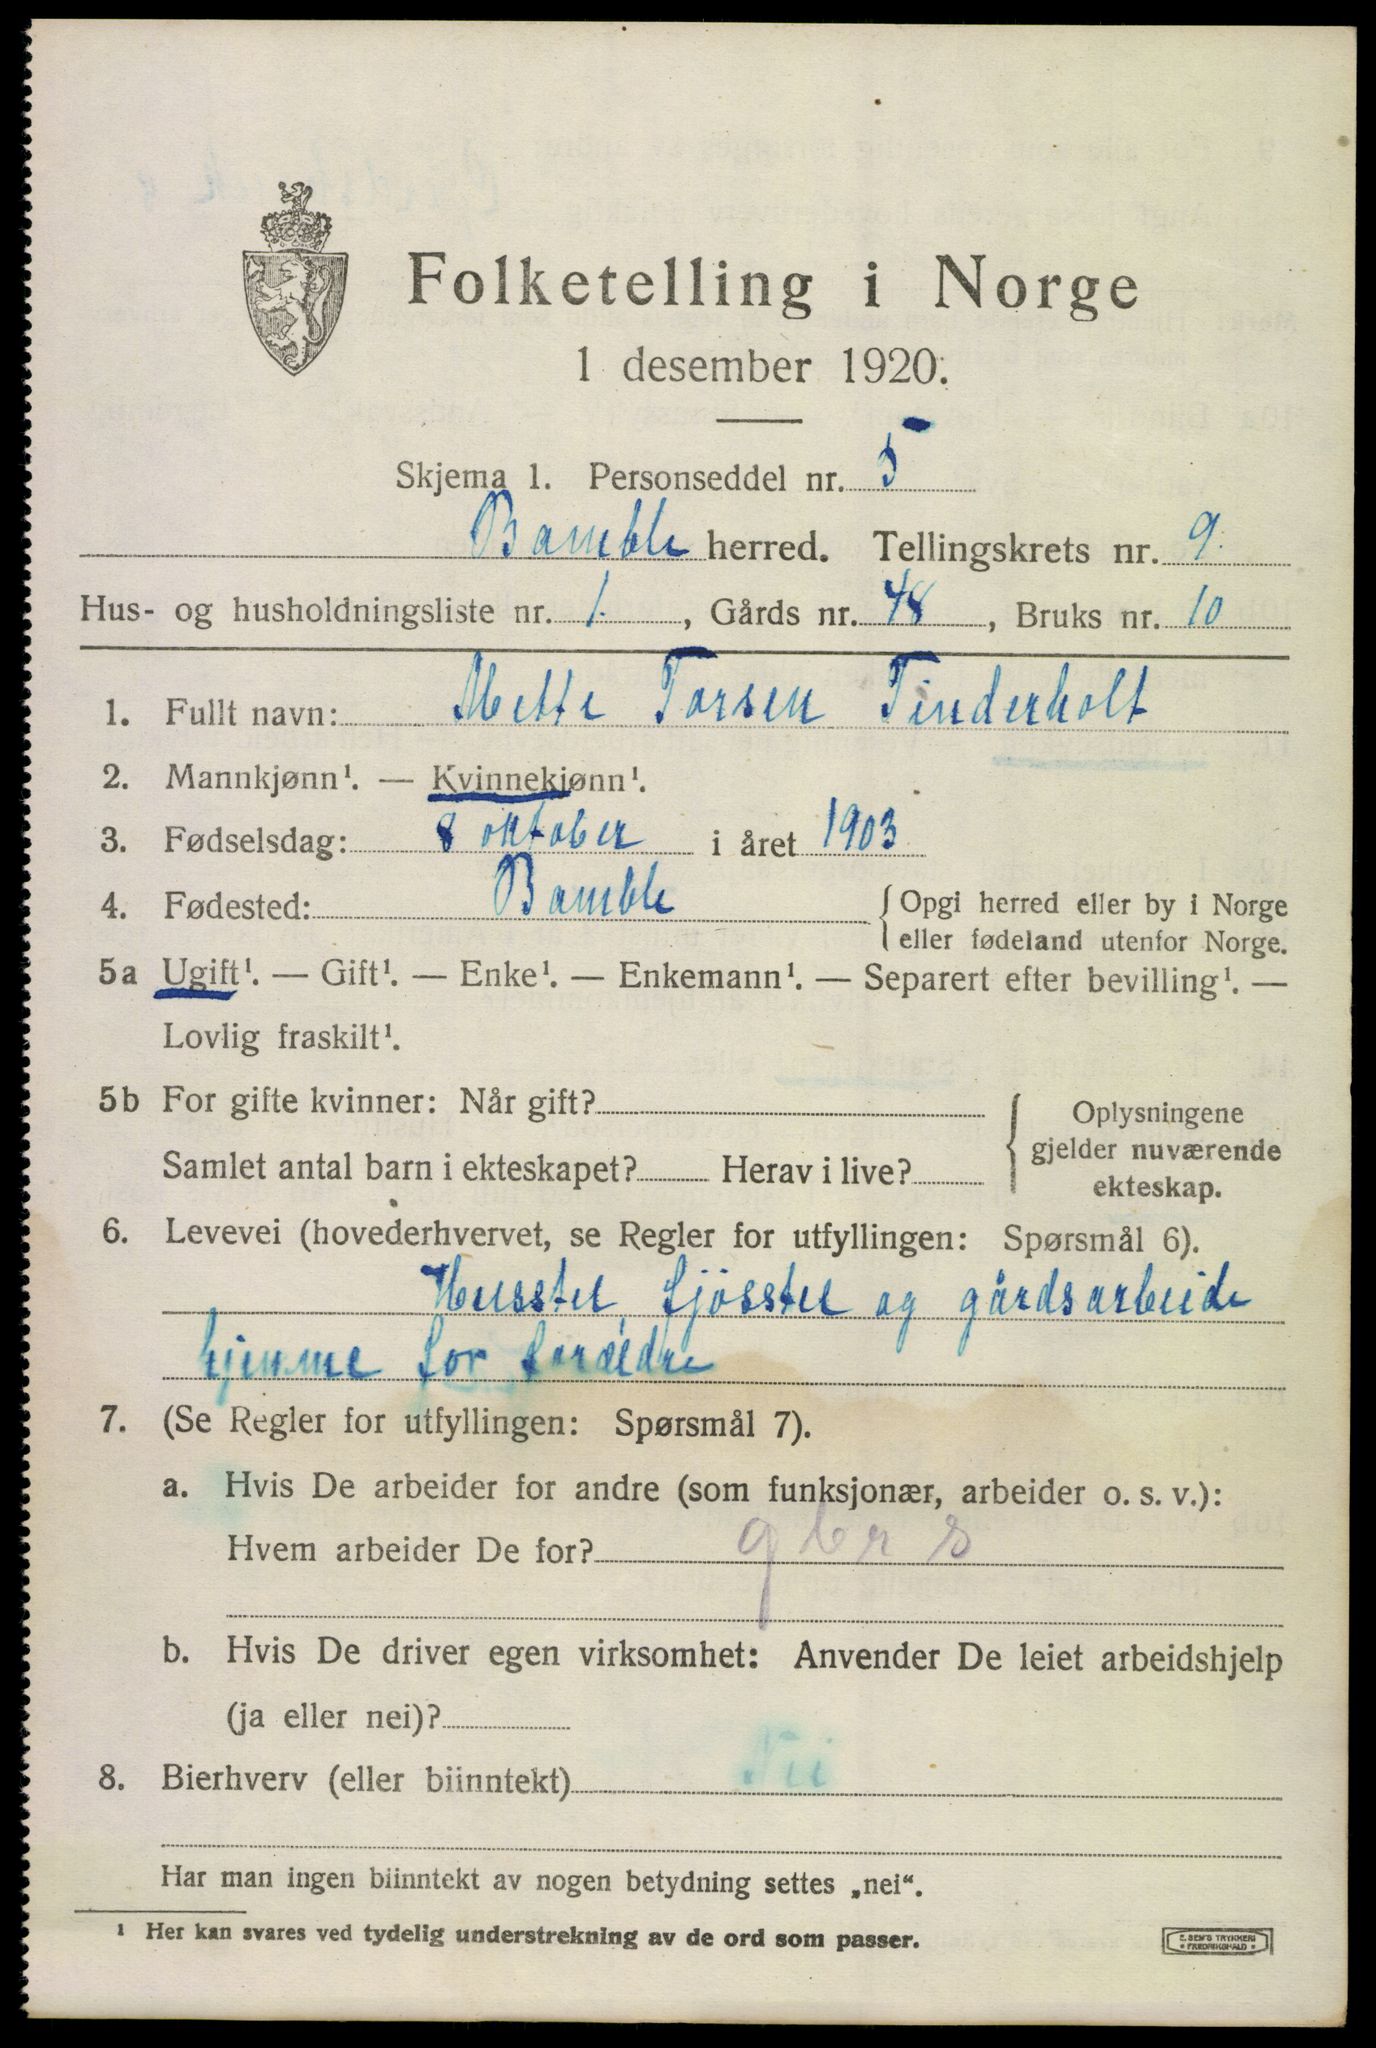 Folketelling i Norge
1 desember 1920.
Skjema 1. Personseddel nr. 5
Bamble herred. Tellingskrets nr. 9.
Hus- og husholdningsliste nr. 1., Gårds nr. 48, Bruks nr. 10
1. Fullt navn: Mette Torsen Tinderholt
2. Mannkjønn¹. — Kvinnekjønn¹.
3. Fødselsdag: 8 oktober i året 1903
4. Fødested: Bamble { Opgi herred eller by i Norge
eller fødeland utenfor Norge.
5a Ugift¹. — Gift¹. — Enke¹. — Enkemann¹. — Separert efter bevilling¹. —
Lovlig fraskilt¹.
5b For gifte kvinner: Når gift?
Samlet antal barn i ekteskapet? Herav i live?
{ Oplysningene
gjelder nuværende
ekteskap.
6. Levevei (hovederhvervet, se Regler for utfyllingen: Spørsmål 6).
Husstel, fjösstel og gårdsarbeide
hjemme for foræeldre
7. (Se Regler for utfyllingen: Spørsmål 7).
a. Hvis De arbeider for andre (som funksjonær, arbeider o. s. v.):
Hvem arbeider De for? gbr s
b. Hvis De driver egen virksomhet: Anvender De leiet arbeidshjelp
(ja eller nei)?
8. Bierhverv (eller biinntekt) Nei
Har man ingen biinntekt av nogen betydning settes „nei“.
¹ Her kan svares ved tydelig understrekning av de ord som passer.
E. SEM'S TRYKKERI
* FREDRIKSHALD *